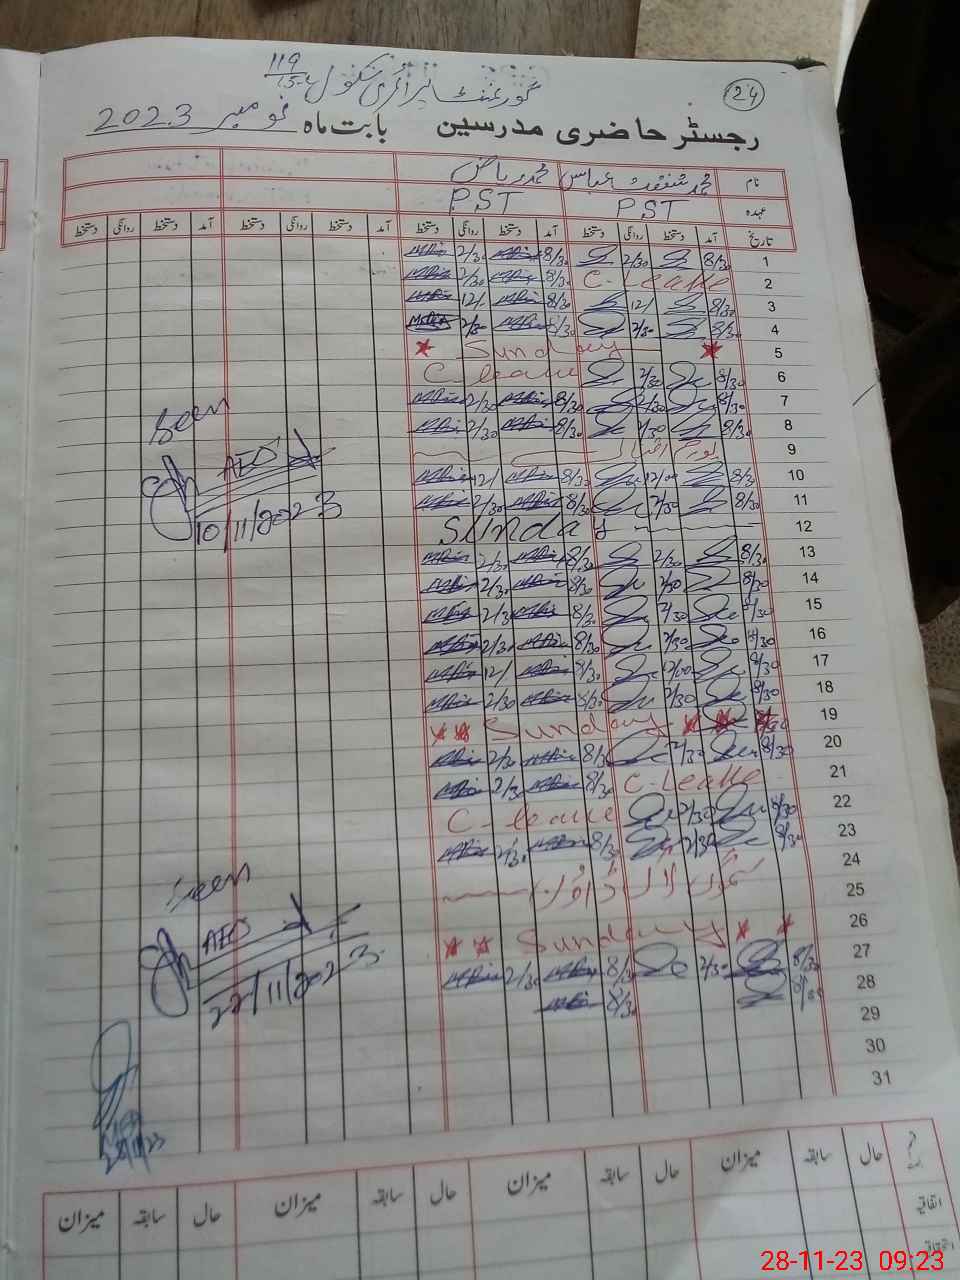 24
گورنمنٹ پرائمری سکول 119/15-L
رجسٹر حاضری مدرسین بابت ماہ نومبر 2023
نام محمد شفقت عباس محمد ریاض
عہدہ PST PST
تاریخ آمد دستخط روانگی دستخط آمد دستخط روانگی دستخط آمد دستخط روانگی دستخط آمد دستخط روانگی دستخط
1 8/30 2/30 8/30 2/30
2 C-Leave 8/30 2/30
3 8/30 12/ 8/30 12/
4 8/30 2/30 8/30 2/30
5 Sunday
6 8/30 2/30 C-leave
7 8/30 2/30 8/30 2/30
8 8/30 2/30 8/30 2/30
9 یوم اقبال
10 8/30 12/00 8/30 12/
11 8/30 2/30 8/30 2/30
12 SUNDAY
13 8/30 2/30 8/30 2/30
14 8/30 2/30 8/30 2/30
15 8/30 2/30 8/30 2/30
16 8/30 2/30 8/30 2/30
17 8/30 12/00 8/30 12/
18 8/30 2/30 8/30 2/30
19 Sunday
20 8/30 2/30 8/30 2/30
21 C-Leave 8/30 2/30
22 8/30 2/30 C-leave
23 8/30 2/30 8/30 2/30
24
25
26 Sunday
27 8/30 2/30 8/30 2/30
28 8/30 8/30
29
30
31
Seen
AEO
10/11/2023
Seen
AEO
22/11/2023
میزان سابقہ حال میزان سابقہ حال میزان سابقہ حال میزان سابقہ حال
اتفاقیہ
استحقاقیہ
28-11-23 09:23